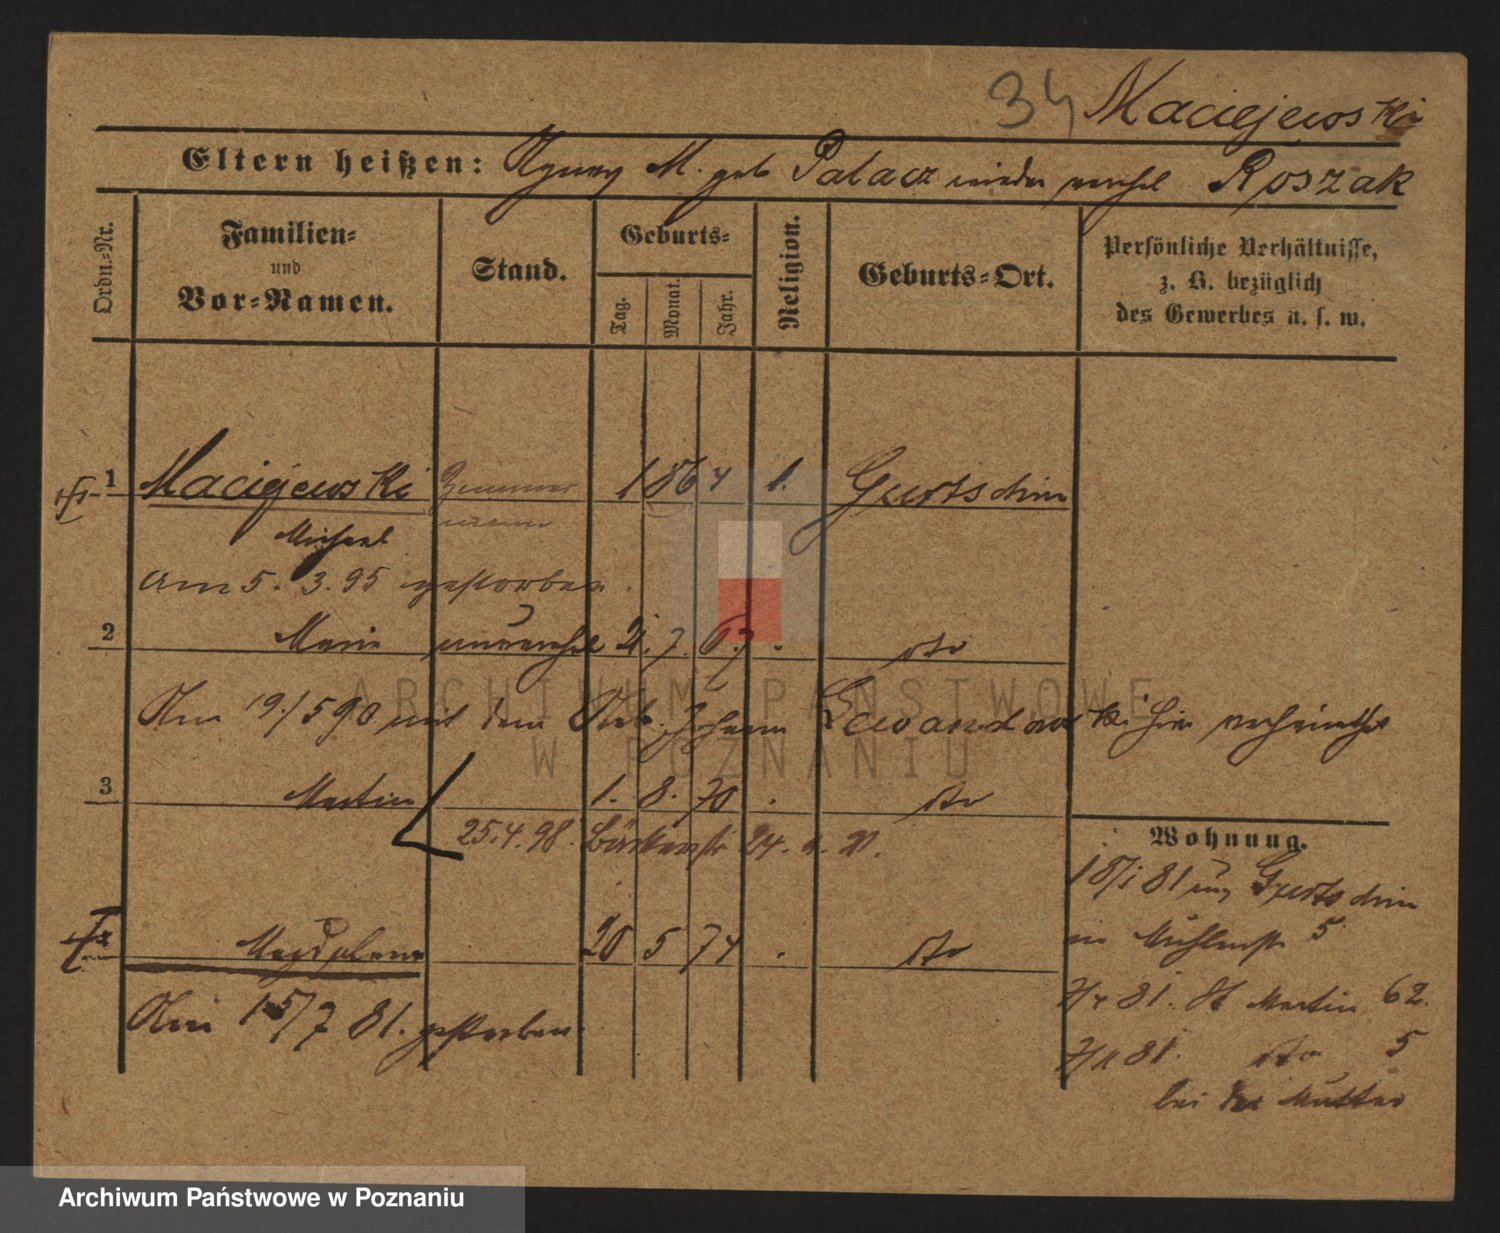 34 Maciejewski
Eltern heißen: Ignaz M. geb Palacz wieder verehel Roszak
Ordn.-Nr.
Familien-
und
Vor-Namen.
Stand.
Geburts-
Tag.
Monat.
Jahr.
Religion.
Geburts-Ort.
Persönliche Verhältnisse,
z. B. bezüglich
des Gewerbes u. s. w.
1 Maciejewski Zimmer 1864 1. Gurtschin
mann
Michael
am 5. 3. 95 gestorben.
2 Marie unverehel 2. 7. 67 . dto
Am 19/5 90 mit dem Arb. Johann Lewandowski hier verheirathet
3 Martin 1. 8. 70 . dto
25.4.98. 24.
Magdalena 20 5 74 . dto
Am 15/7 81. gestorben.
Wohnung.
18/1 81 aus Gurtschin
Mühlenstr 5
81. St Martin 62.
81. dto 5
bei der Mutter
ARCHIWUM PAŃSTWOWE
W POZNANIU
Archiwum Państwowe w Poznaniu